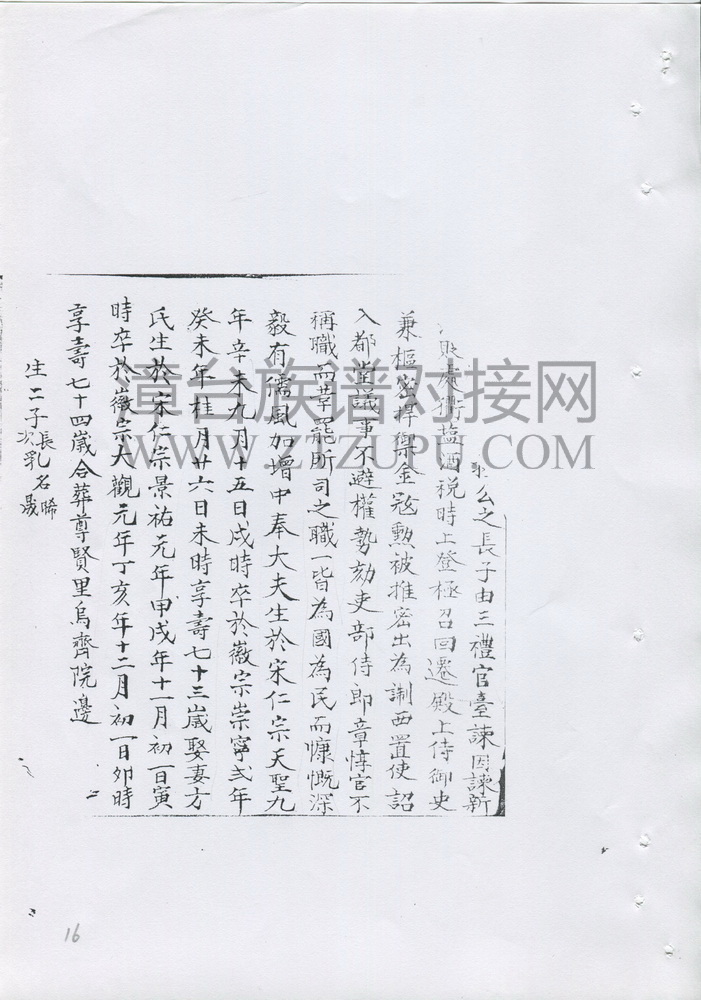 么之長子由三禮官臺諫因諫新
處衢塩酒稅時上登極召回遷殿上侍御史
兼樞密捍禦金冦勲被推密出為制西置使詔
入都堂議事不避權勢劾吏部侍郎章惇官不
稱職而草罷所司之職一皆為國為民而慷慨深
毅有儒風加增中奉大夫生於宋仁宗天聖九
年辛未九月十五日戌時卒於徽宗崇寧弍年
癸未年桂月廿六日未時享壽七十三歲娶妻方
氏生於宋仁宗景祐元年甲戌年十一月初一日寅
時卒於徽宗大觀元年丁亥年十二月初一日夘時
享壽七十四歲合葬尊賢里烏齊院邊
生二子長乳名晞
次晟
漳台族谱对接网
WWW.ZTZUPU.COM
16